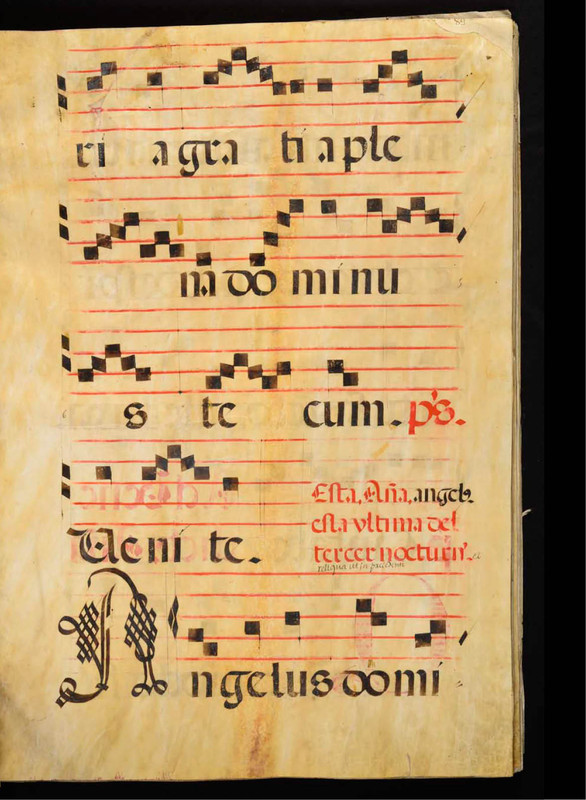 ri a gra ti a ple
na do minu
s te cum. ps.
Ueni te.
Esta. Aña. angel⁹.
esta vltima del
tercer nocturn⁹.
Angelus domi